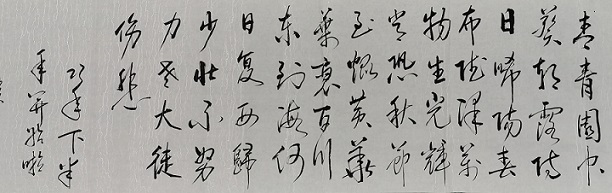 青青園中
葵朝露待
日晞陽春
布德澤萬
物生光輝
常恐秋節
至焜黄華
葉衰百川
東到海何
日复西歸
少壮不努
力老大徒
傷悲
年下半
年開始啦